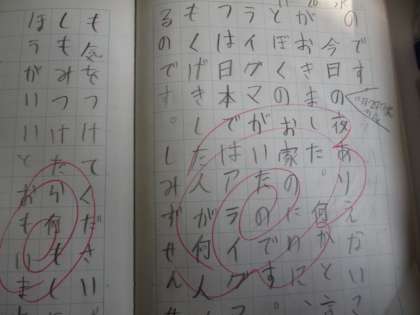 のです
今日の夜ありえないこ
がおきました。何かと言
とぼくのお家のにわに
ラグマがいたのです
フは日本ではアライグ
もくげきした人が何人
るのです。しみずせん
も気をつけてください
しもみつけたら何もし
ほうがいいとおもいま